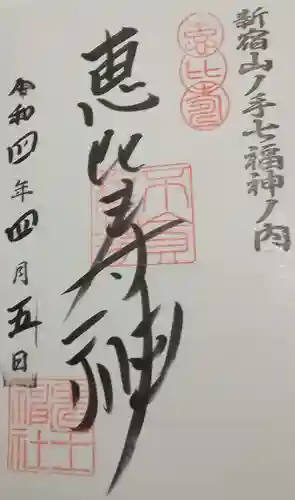 新宿山ノ手七福神ノ内
恵比寿
恵比寿神
令和四年四月五日